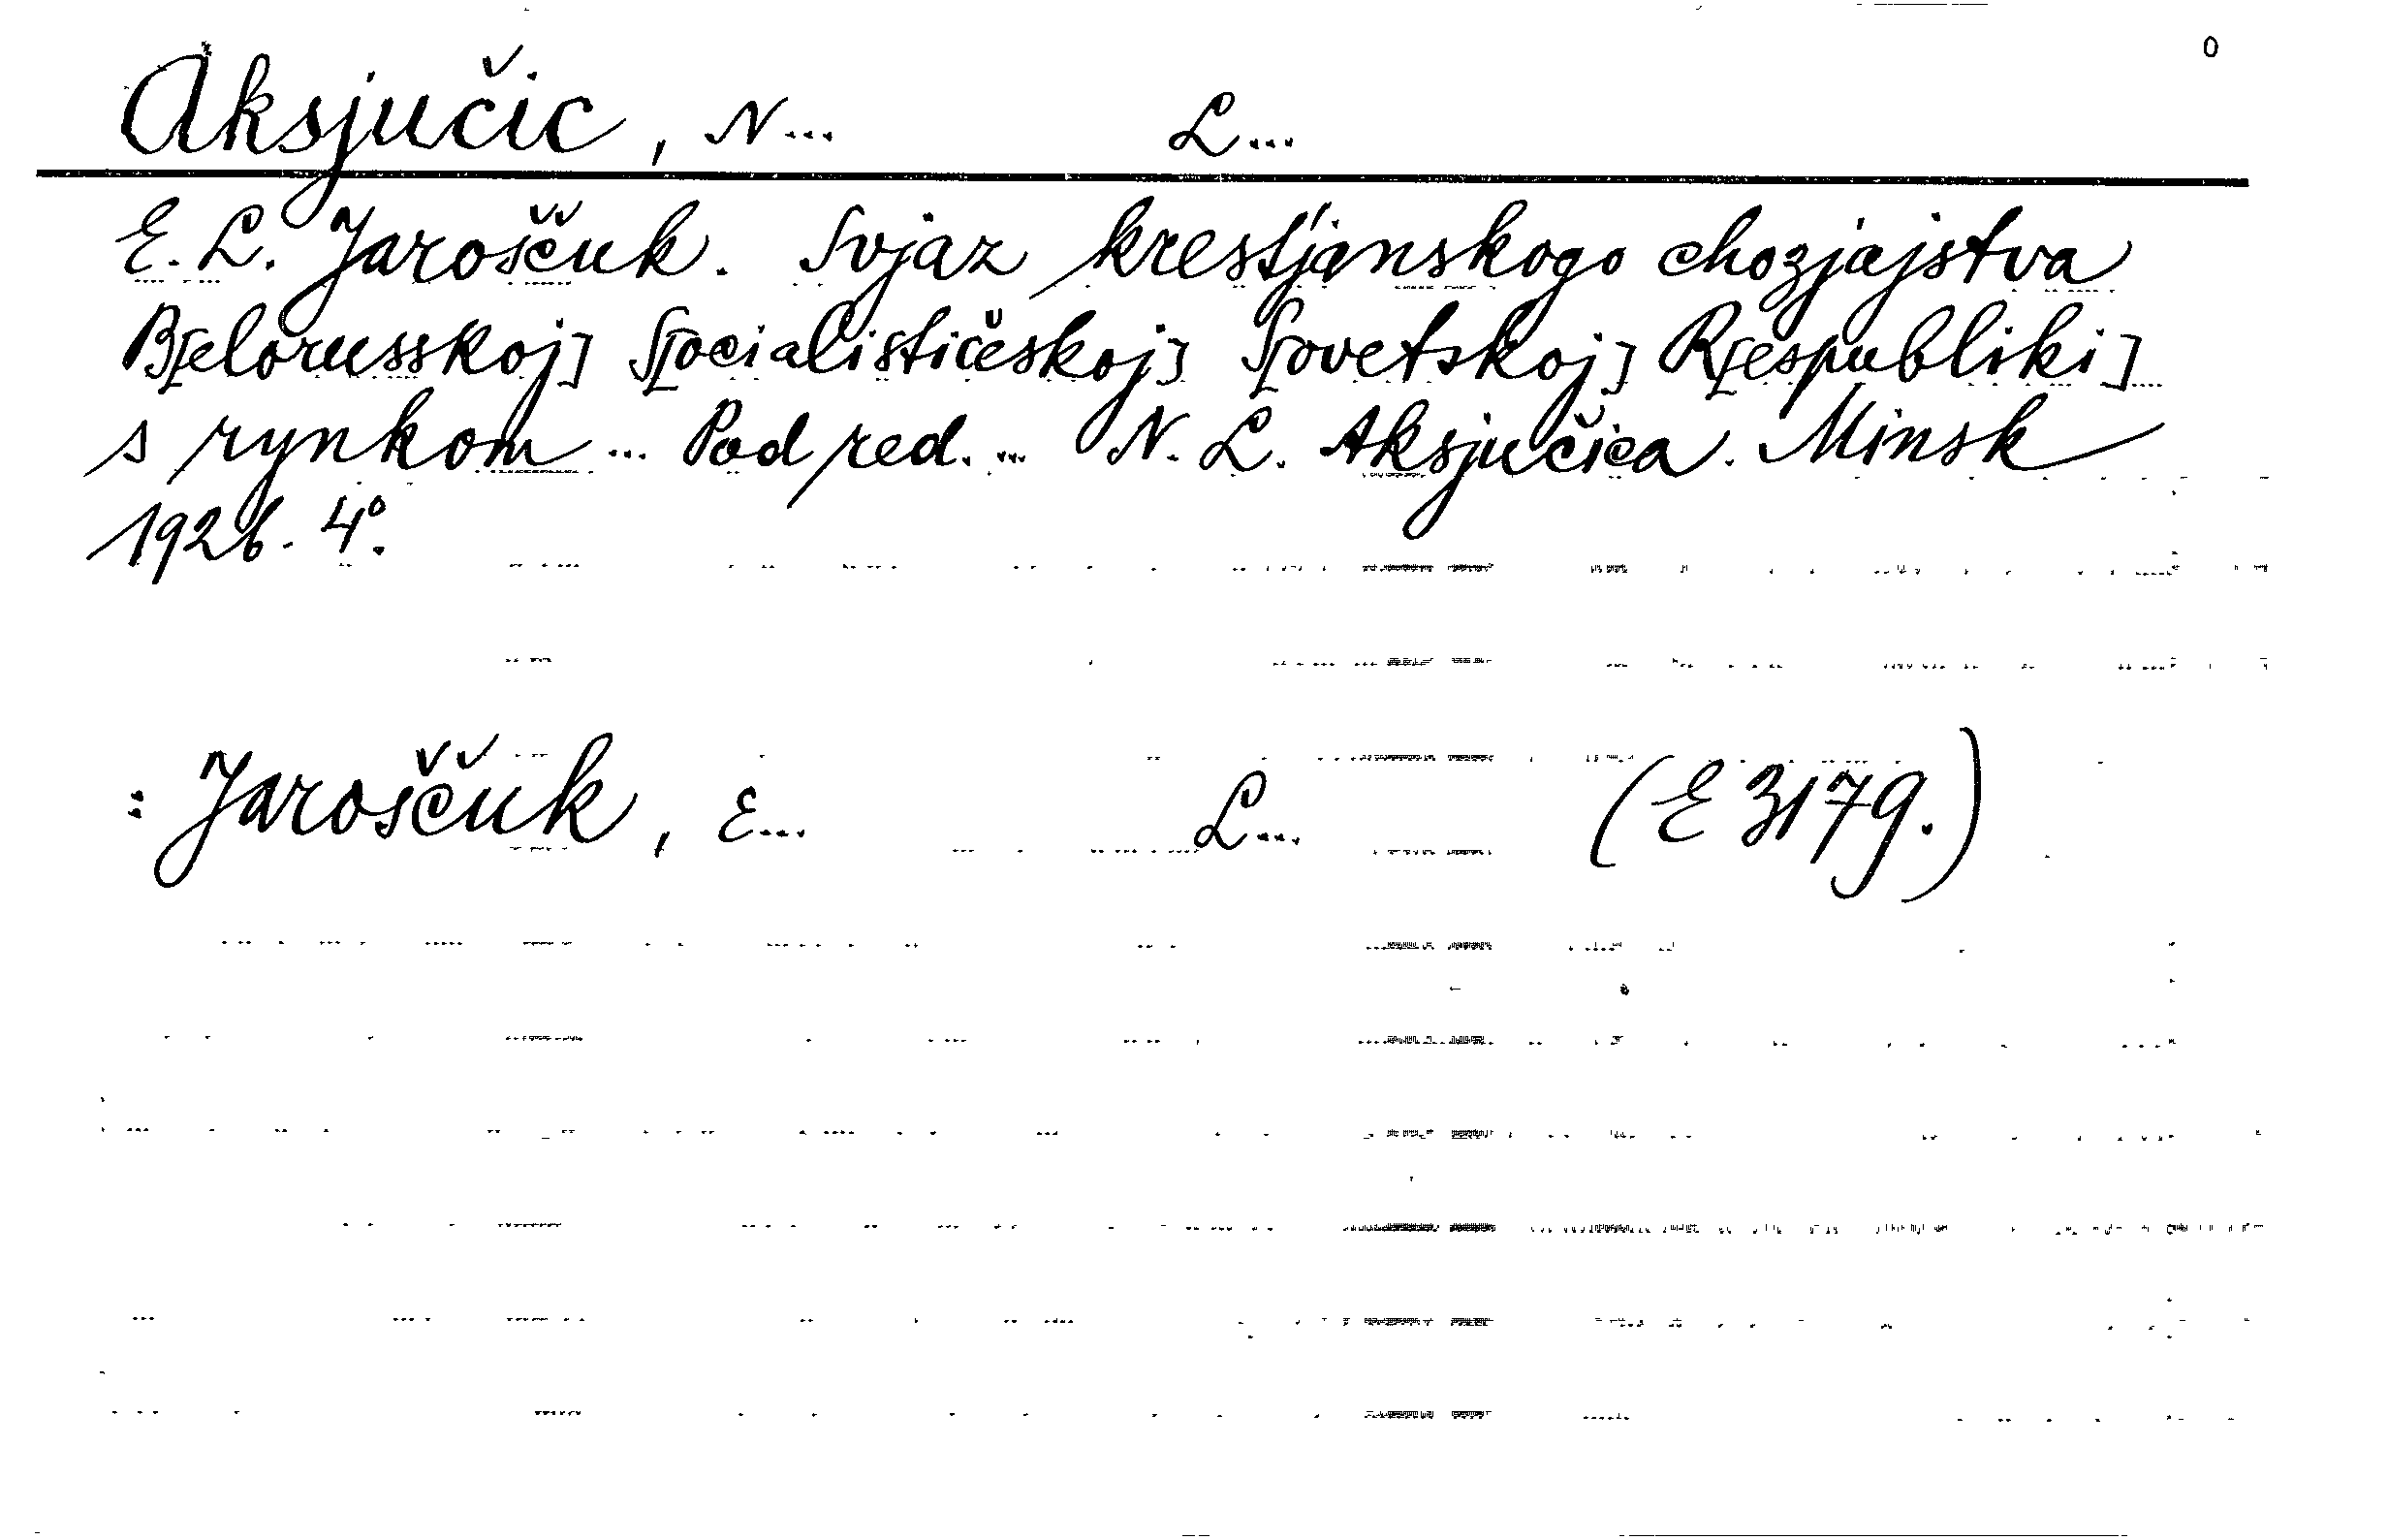 o
Aksjučic, N... L...
E. L. Jaroščuk. Svjaz krest'janskogo chozjajstva
B[elorusskoj] S[ocialističeskoj] S[ovetskoj] R[espubliki]
s rynkom ... Pod red. ... N. L. Aksjučica. Minsk
1926. 4°.
: Jaroščuk, E... L... (E 3179.)